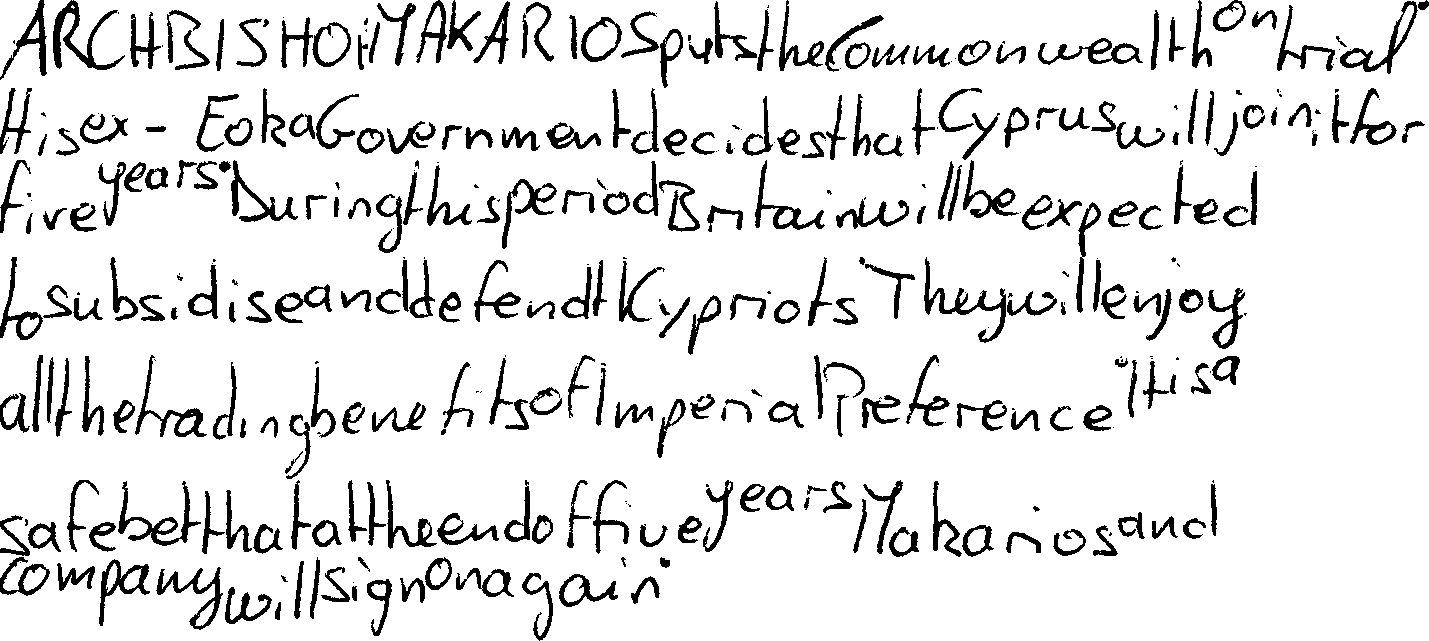 ARCHBISHOP MAKARIOS puts the Commonwealth on trial.
His ex - Eoka Government decides that Cyprus will join it for
five years. During this period Britain will be expected
to subsidise and defend Kypriots. They will enjoy
all the trading benefits of Imperial Preference. It is a
safe bet that at the end of five years Makarios and
company will sign on again.